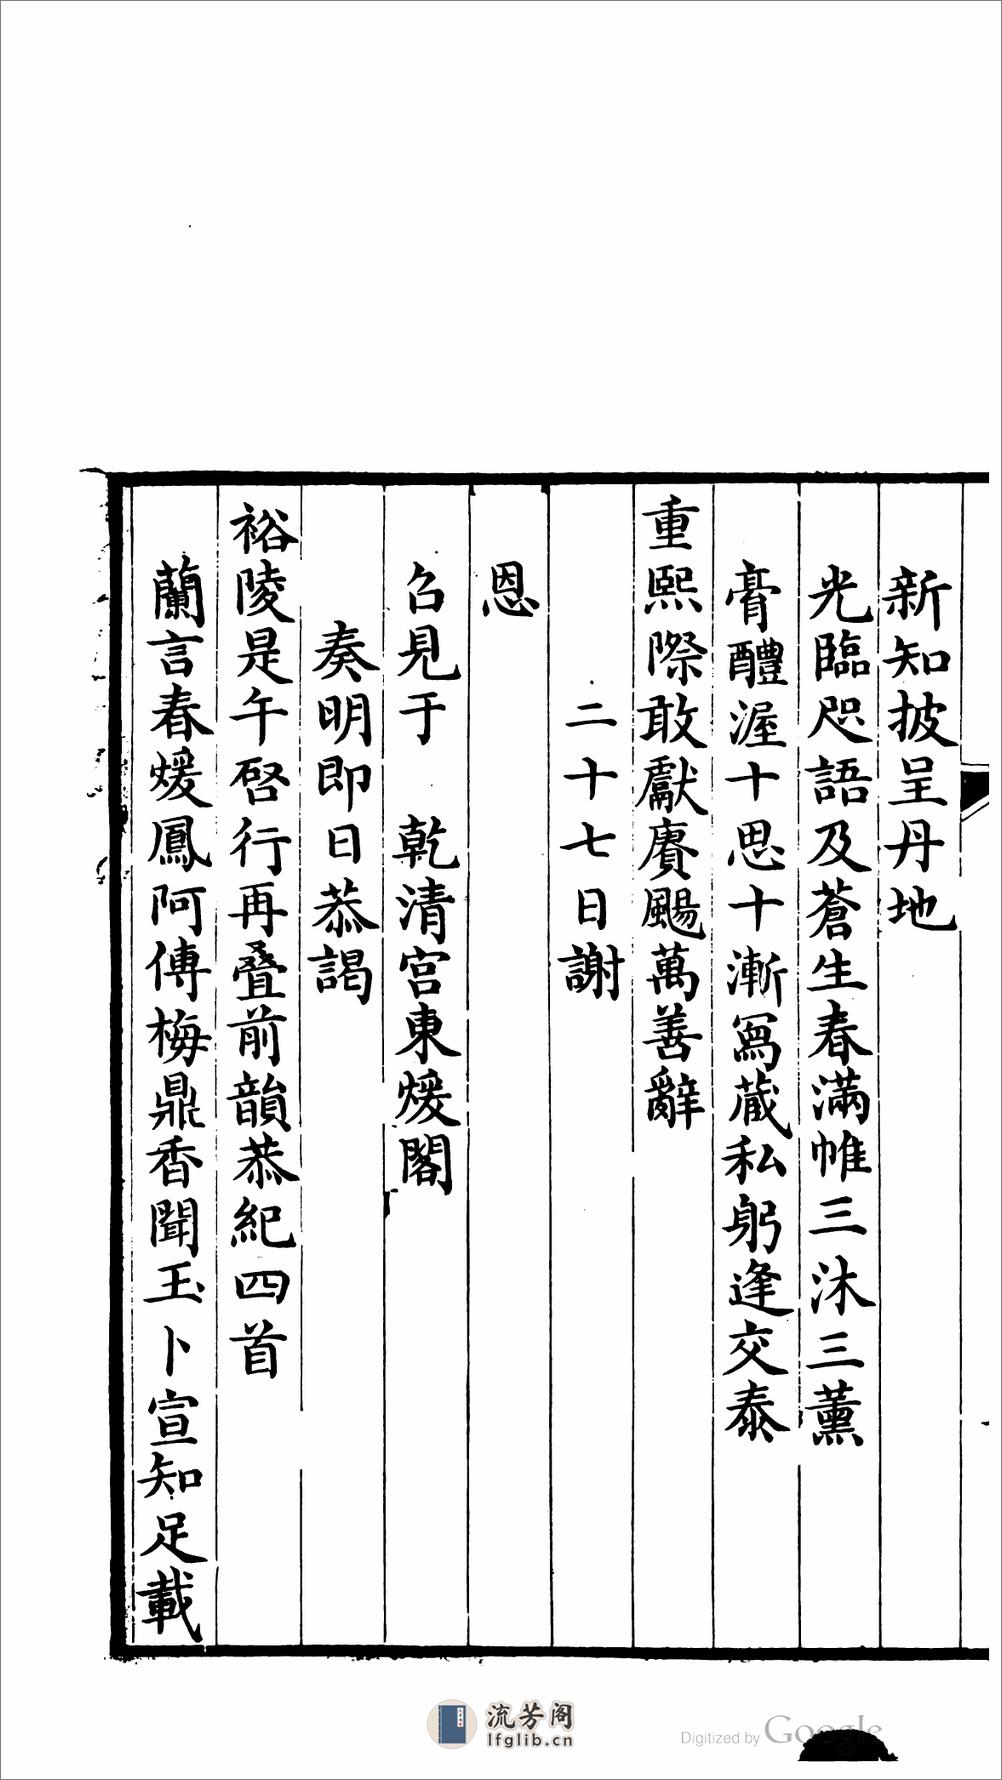 新知披呈丹地
光臨咫語及蒼生春滿帷三沐三薰
膏醴渥十思十漸寫葴私躬逢交泰
重熙際敢獻賡颺萬善辭
二十七日謝
恩
召見于　乾清宮東煖閣
奏明即日恭謁
裕陵是午啓行再叠前韻恭紀四首
蘭言春煖鳳阿傅梅鼎香聞玉卜宣知足載
流芳阁
lfglib.cn
Digitized by Google